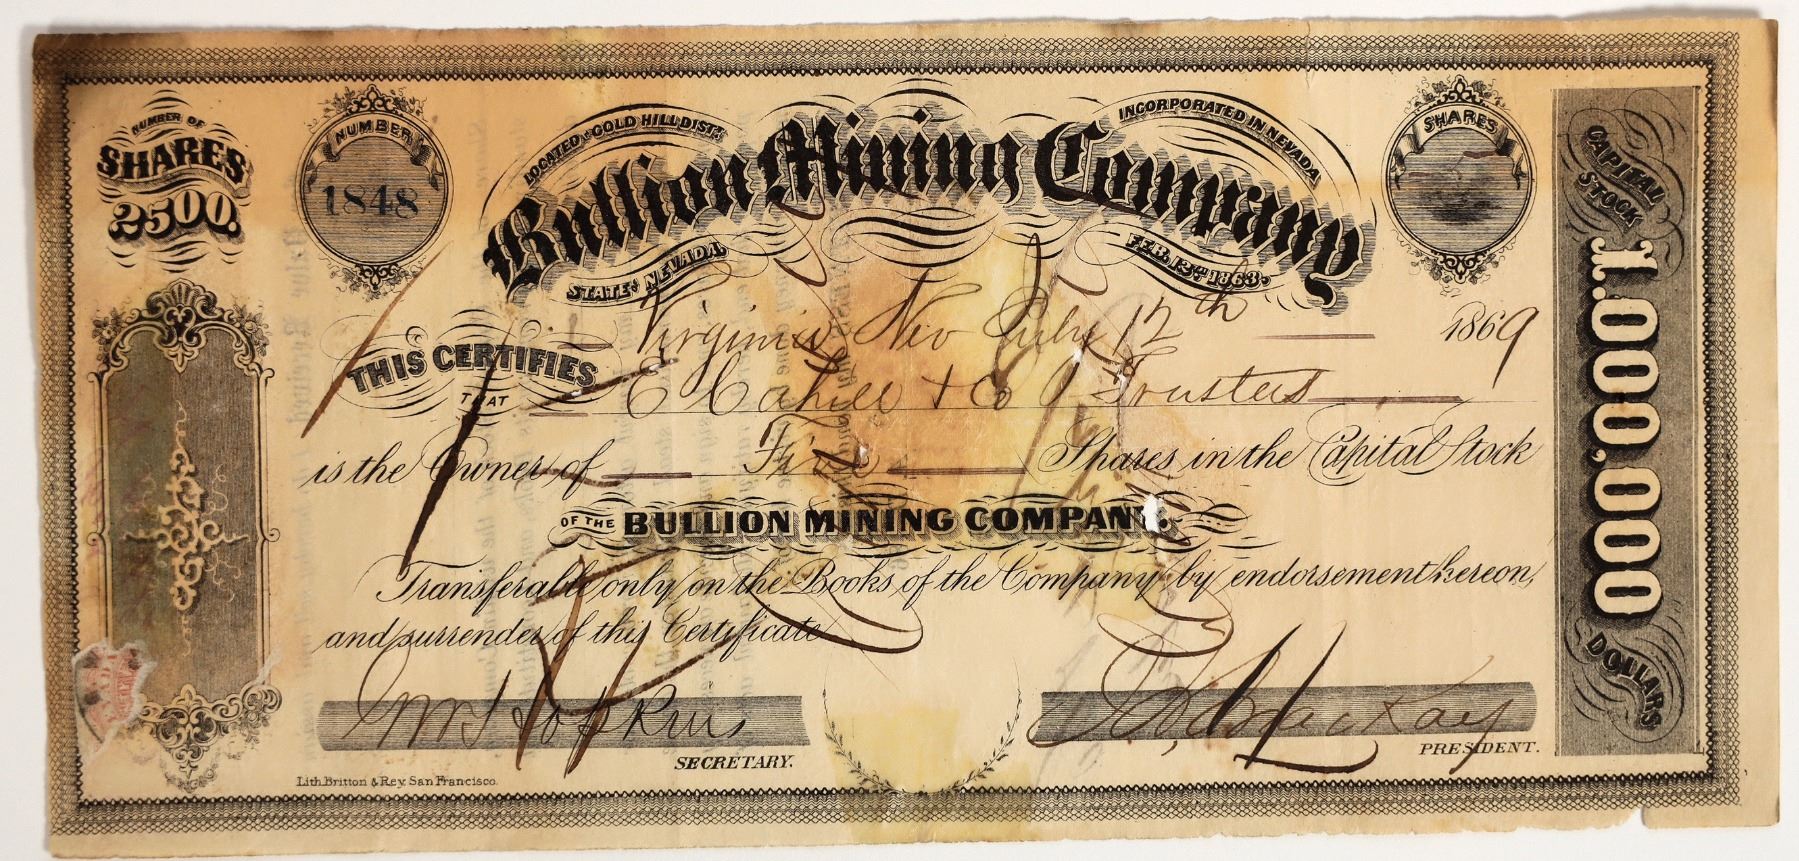 NUMBER OF
SHARES
2500.
NUMBER
1848
LOCATED GOLD HILL DIST.
INCORPORATED IN NEVADA
Bullion Mining Company
STATE OF NEVADA.
FEB. 13TH 1863.
SHARES
Virginia Nev July 12th 1869
THIS CERTIFIES
THAT
E Cahill & Co Trustees
is the Owner of Five Shares in the Capital Stock
OF THE BULLION MINING COMPANY.
Transferable only on the Books of the Company by endorsement hereon,
and surrender of this Certificate
Wm Hopkins
SECRETARY.
Mackay
PRESIDENT.
Lith. Britton & Rey. San Francisco.
CAPITAL
STOCK
1.000.000
DOLLARS